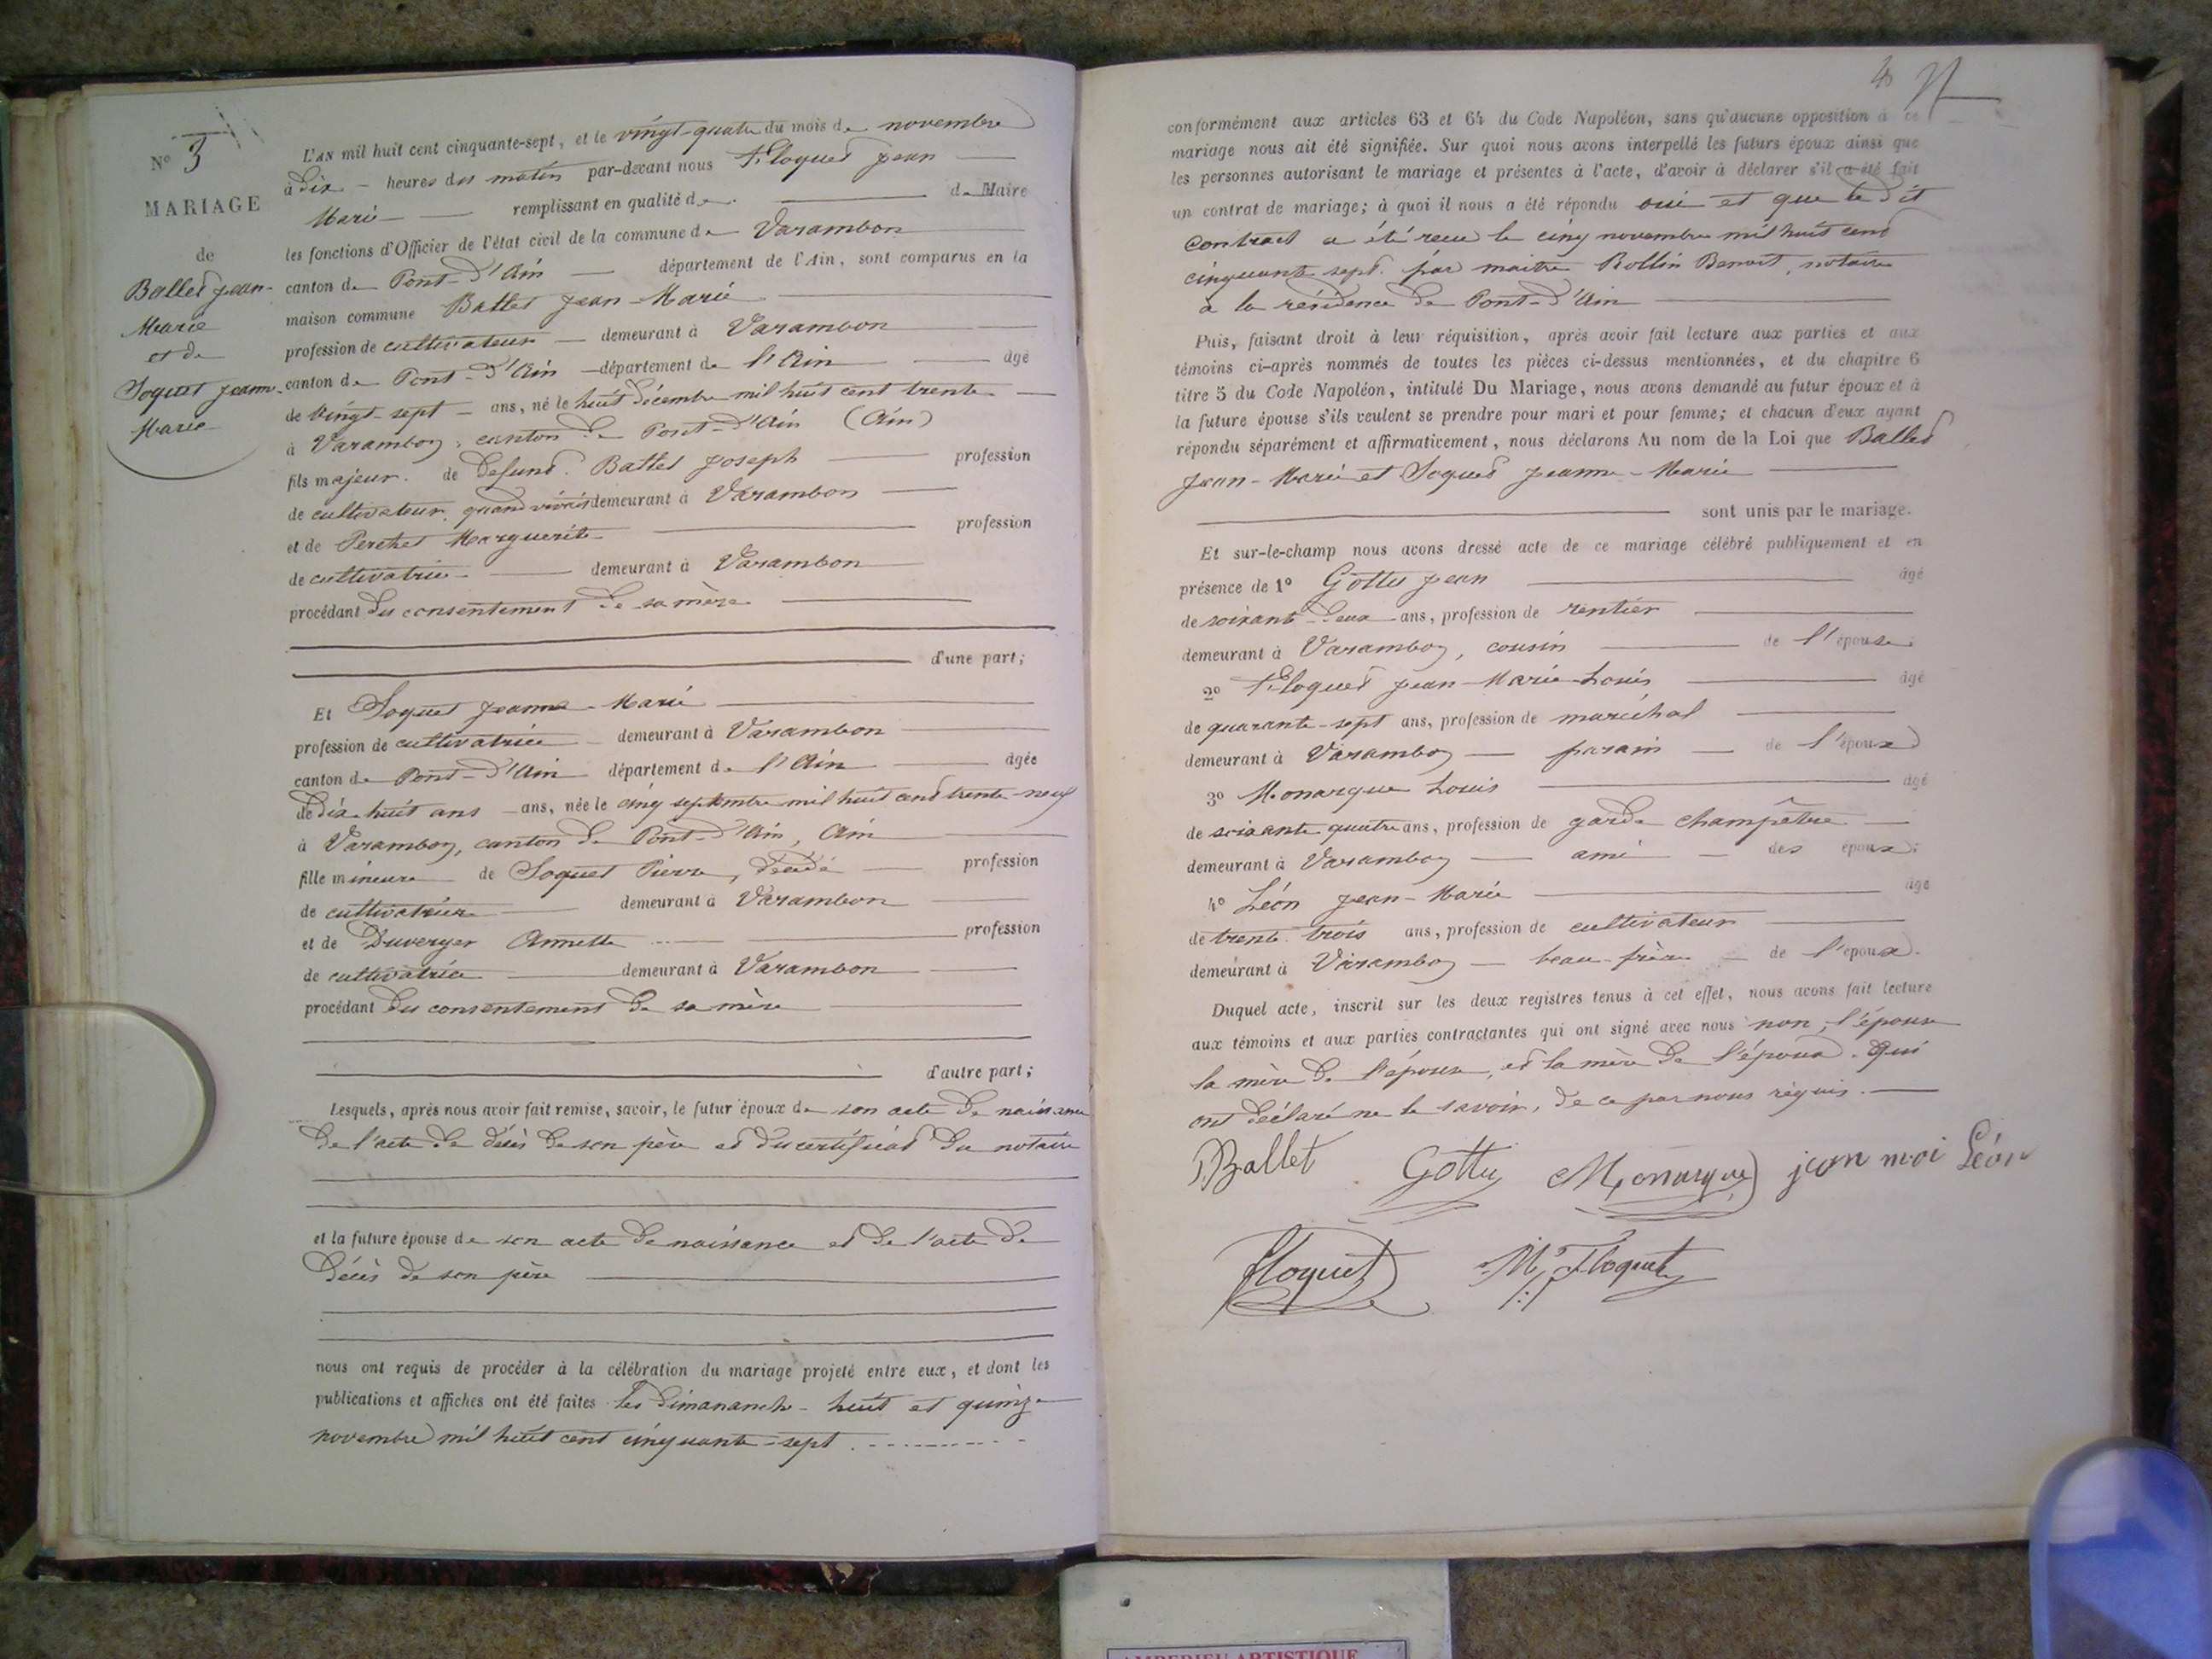 N° 3
MARIAGE
de
Ballet Jean-
Marie
et de
Soquet Jeanne-
Marie
L'AN mil huit cent cinquante-sept, et le vingt-quatre du mois de novembre
à dix heures du matin par-devant nous Floquet Jean
Marie remplissant en qualité de Maire
les fonctions d'Officier de l'état civil de la commune de Varambon
canton de Pont-d'Ain département de l'Ain, sont comparus en la
maison commune Ballet Jean-Marie
profession de cultivateur demeurant à Varambon
canton de Pont-d'Ain département de l'Ain âgé
de vingt-sept ans, né le huit décembre mil huit cent trente
à Varambon, canton de Pont-d'Ain (Ain)
fils majeur de defunt Ballet Joseph profession
de cultivateur quand vivait demeurant à Varambon
et de Perchet Marguerite profession
de cultivatrice demeurant à Varambon
procédant du consentement de sa mère
d'une part;
Et Soquet Jeanne-Marie
profession de cultivatrice demeurant à Varambon
canton de Pont-d'Ain département de l'Ain âgée
de dix-huit ans ans, née le cinq septembre mil huit cent trente-neuf
à Varambon, canton de Pont-d'Ain, Ain
fille mineure de Soquet Pierre, décédé profession
de demeurant à Varambon
et de Duverger Annette profession
de cultivatrice demeurant à Varambon
procédant du consentement de sa mère
d'autre part;
Lesquels, après nous avoir fait remise, savoir, le futur époux de son acte de naissance
de l'acte de décès de son père et du certificat du notaire
et la future épouse de son acte de naissance et de l'acte de
décès de son père
nous ont requis de procéder à la célébration du mariage projeté entre eux, et dont les
publications et affiches ont été faites les dimananche huit et quinze
novembre mil huit cent cinquante-sept
conformément aux articles 63 et 64 du Code Napoléon, sans qu'aucune opposition à ce
mariage nous ait été signifiée. Sur quoi nous avons interpellé les futurs époux ainsi que
les personnes autorisant le mariage et présentes à l'acte, d'avoir à déclarer s'il a été fait
un contrat de mariage; à quoi il nous a été répondu oui et que le dit
contract a été reçu le cinq novembre mil huit cent
cinquante sept par maitre Rollin Benoit, notaire
a la résidence de Pont-d'Ain
Puis, faisant droit à leur réquisition, après avoir fait lecture aux parties et aux
témoins ci-après nommés de toutes les pièces ci-dessus mentionnées, et du chapitre 6
titre 5 du Code Napoléon, intitulé Du Mariage, nous avons demandé au futur époux et à
la future épouse s'ils veulent se prendre pour mari et pour femme; et chacun d'eux ayant
répondu séparément et affirmativement, nous déclarons Au nom de la Loi que Ballet
Jean-Marie et Soquet Jeanne-Marie
sont unis par le mariage.
Et sur-le-champ nous avons dressé acte de ce mariage célébré publiquement et en
présence de 1° Gottey Jean âgé
de soixante-deux ans, profession de rentier
demeurant à Varambon, cousin de l'épouse;
2° Floquet Jean-Marie-Louis âgé
de quarante-sept ans, profession de maréchal
demeurant à Varambon parain de l'époux
3° Monarque Louis âgé
de soixante quatre ans, profession de garde champêtre
demeurant à Varambon ami des époux;
4° Léon Jean-Marie âgé
de trente trois ans, profession de cultivateur
demeurant à Varambon beau-frère de l'époux.
Duquel acte, inscrit sur les deux registres tenus à cet effet, nous avons fait lecture
aux témoins et aux parties contractantes qui ont signé avec nous non, l'épouse
la mère de l'épouse, et la mère de l'époux. qui
ont déclaré ne le savoir, de ce par nous requis.
Ballet Gottey Monarque jean mari Léon
Floquet Floquet
AMBERIEU ARTISTIQUE